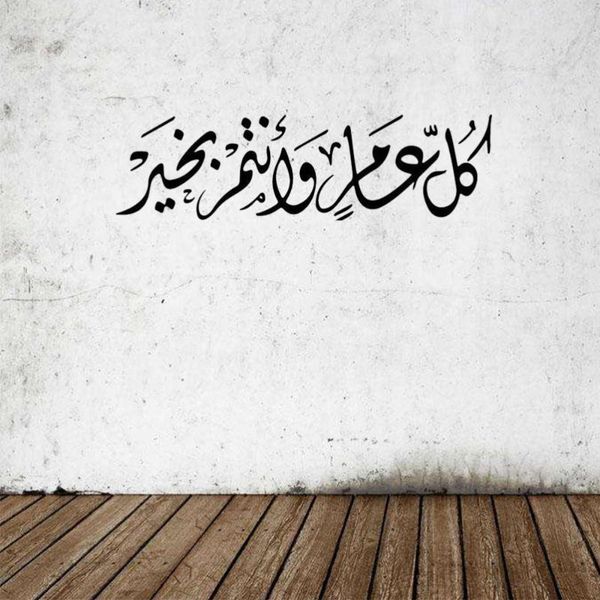 كُلّ عَامٍ وَأنتمْ بخَيْر